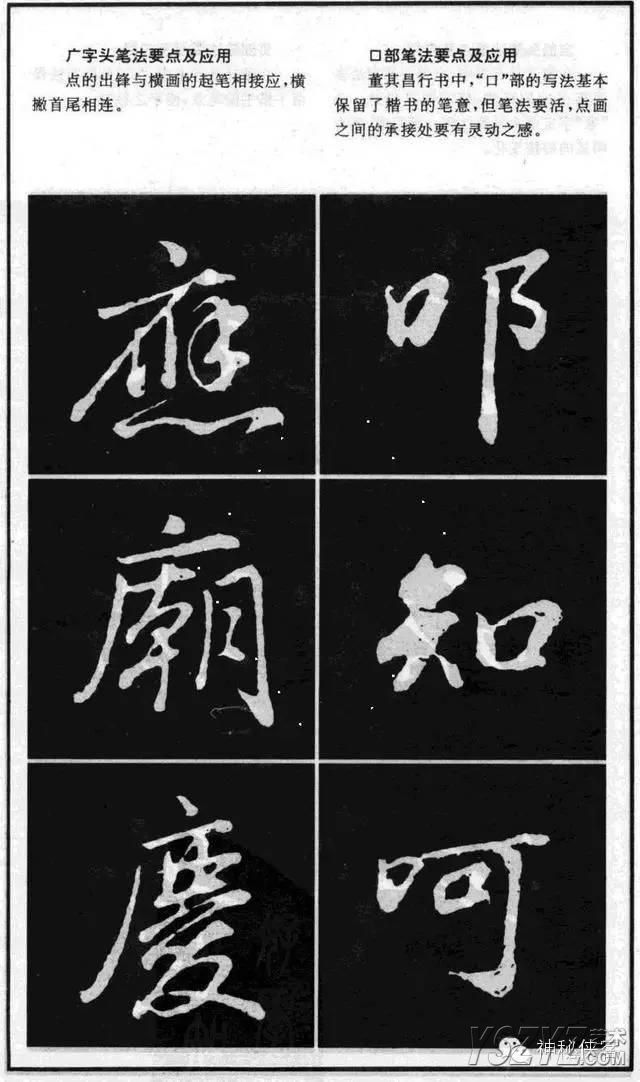 广字头笔法要点及应用
点的出锋与横画的起笔相接应，横
撇首尾相连。
口部笔法要点及应用
董其昌行书中，“口”部的写法基本
保留了楷书的笔意，但笔法要活，点画
之间的承接处要有灵动之感。
應
叩
廟
知
慶
呵
神秘侠客
YSZYZ艺术
.COM